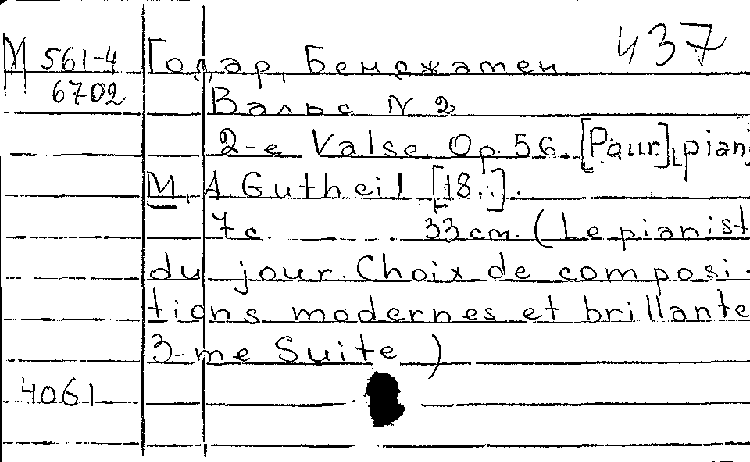 437
М 561-4 Годар, Бенджамен
6702
Вальс N 2
2-e Valse Op. 56. [Pour] pian
М, A Gutheil [18..].
7с. 33 cm. (Le pianist
du jour. Choix de composi-
tions modernes et brillante
3-me Suite)
4061